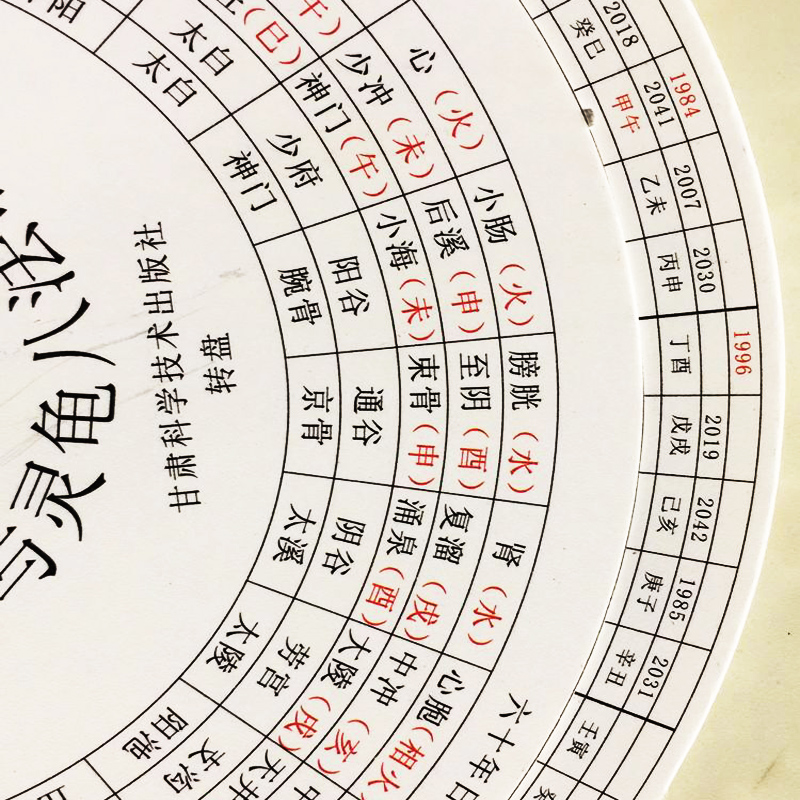 灵龟八法
转盘
甘肃科学技术出版社
太白
太白
(巳)
心(火)
少冲(未)
神门(午)
少府
神门
小肠(火)
后溪(申)
小海(未)
阳谷
腕骨
膀胱(水)
至阴(酉)
束骨(申)
通谷
京骨
肾(水)
复溜(戌)
涌泉(酉)
阴谷
太溪
心胞(相火
中冲(亥)
大陵(戌)
劳宫
大陵
天井
支沟
阳池
六十年
2018
癸巳
1984
2041
甲午
2007
乙未
2030
丙申
1996
丁酉
2019
戊戌
2042
己亥
1985
庚子
2031
辛丑
壬寅